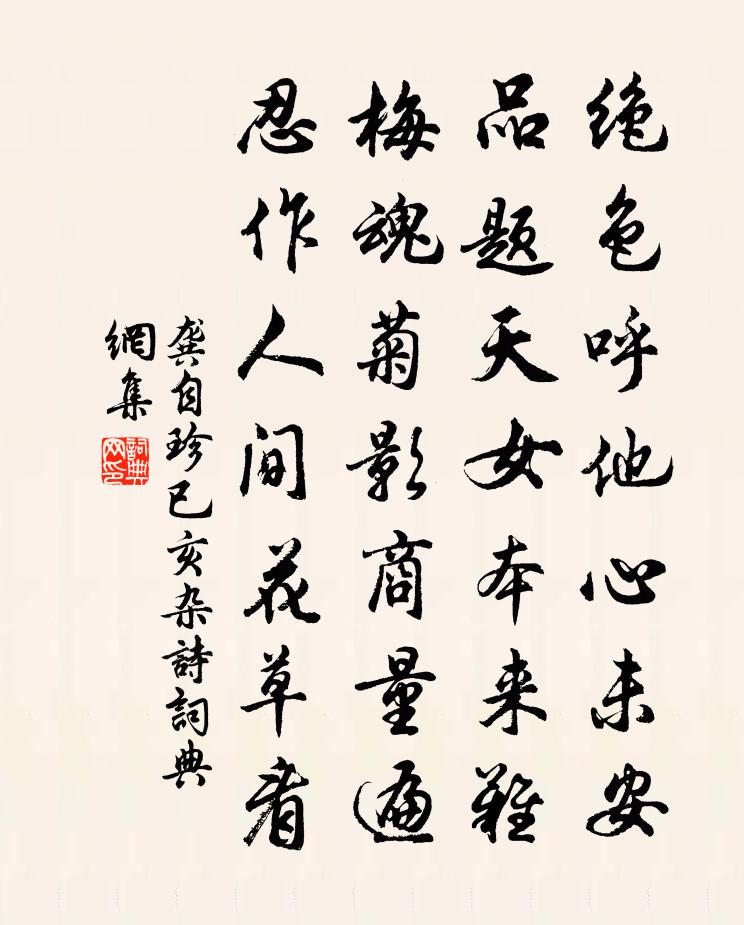 绝色呼他心未安
品题天女本来难
梅魂菊影商量遍
忍作人间花草看
龚自珍己亥杂詩詞典
網集
詞典網印